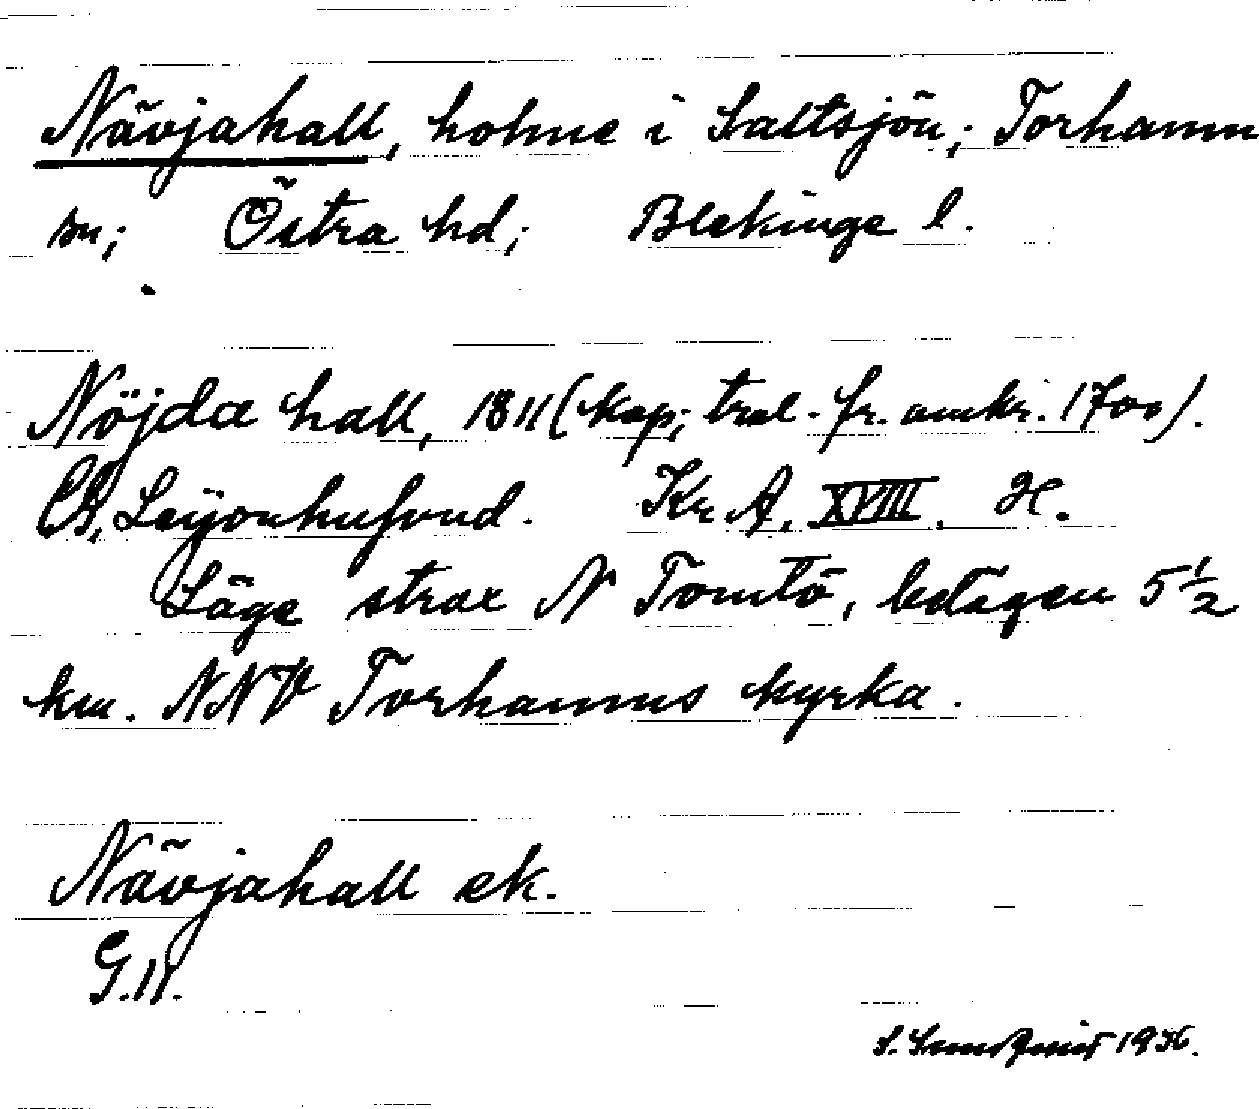 Nävjahall, holme i Saltsjön; Torhamn
sn; Östra hd; Blekinge l.
Nöjda hall, 1811 (kop; trol. fr. omkr. 1700).
Cs, Leijonhufvud. Kr. A. XVIII. H.
Läge strax N Tomtö, belägen 5 1/2
km. NNV Torhamns kyrka.
Nävjahall ek.
G.11.
S. Sundqvist 1936.